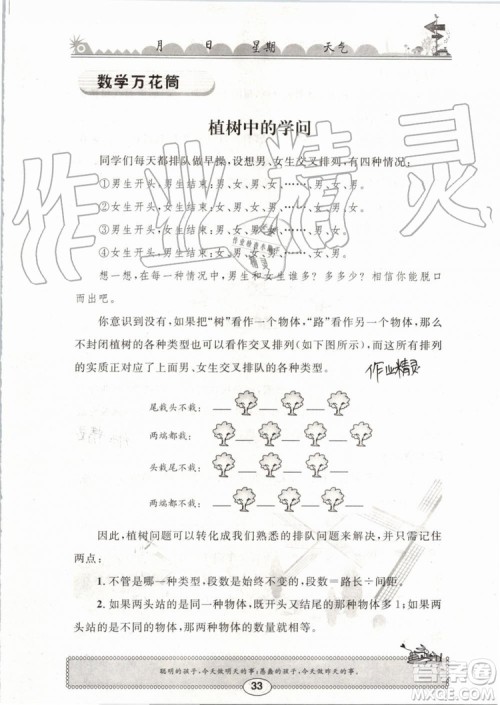 月 日 星期 天气
数学万花筒
植树中的学问
同学们每天都排队做早操,设想男、女生交叉排列,有四种情况:
①男生开头,男生结束:男、女、男、女、……、男、女、男。
②男生开头,女生结束:男、女、男、女、……、男、女。
③女生开头,男生结束:女、男、女、男、……、女、男。
④女生开头,女生结束:女、男、女、男、……、女、男、女。
想一想,在每一种情况中,男生和女生谁多?多多少?相信你能脱口
而出吧。
你意识到没有,如果把“树”看作一个物体,“路”看作另一个物体,那么
不封闭植树的各种类型也可以看作交叉排列(如下图所示),而这所有排列
的实质正对应了上面男、女生交叉排队的各种类型。
作业精灵
尾栽头不栽:
两端都栽:
头栽尾不栽:
两端都不栽:
因此,植树问题可以转化成我们熟悉的排队问题来解决,并只需记住
两点:
1. 不管是哪一种类型,段数是始终不变的,段数=路长÷间距。
2. 如果两头站的是同一种物体,既开头又结尾的那种物体多1;如果两
头站的是不同的物体,那么两种物体的数量相等。
聪明的孩子,今天做明天的事;愚蠢的孩子,今天做昨天的事。
33
作业精灵